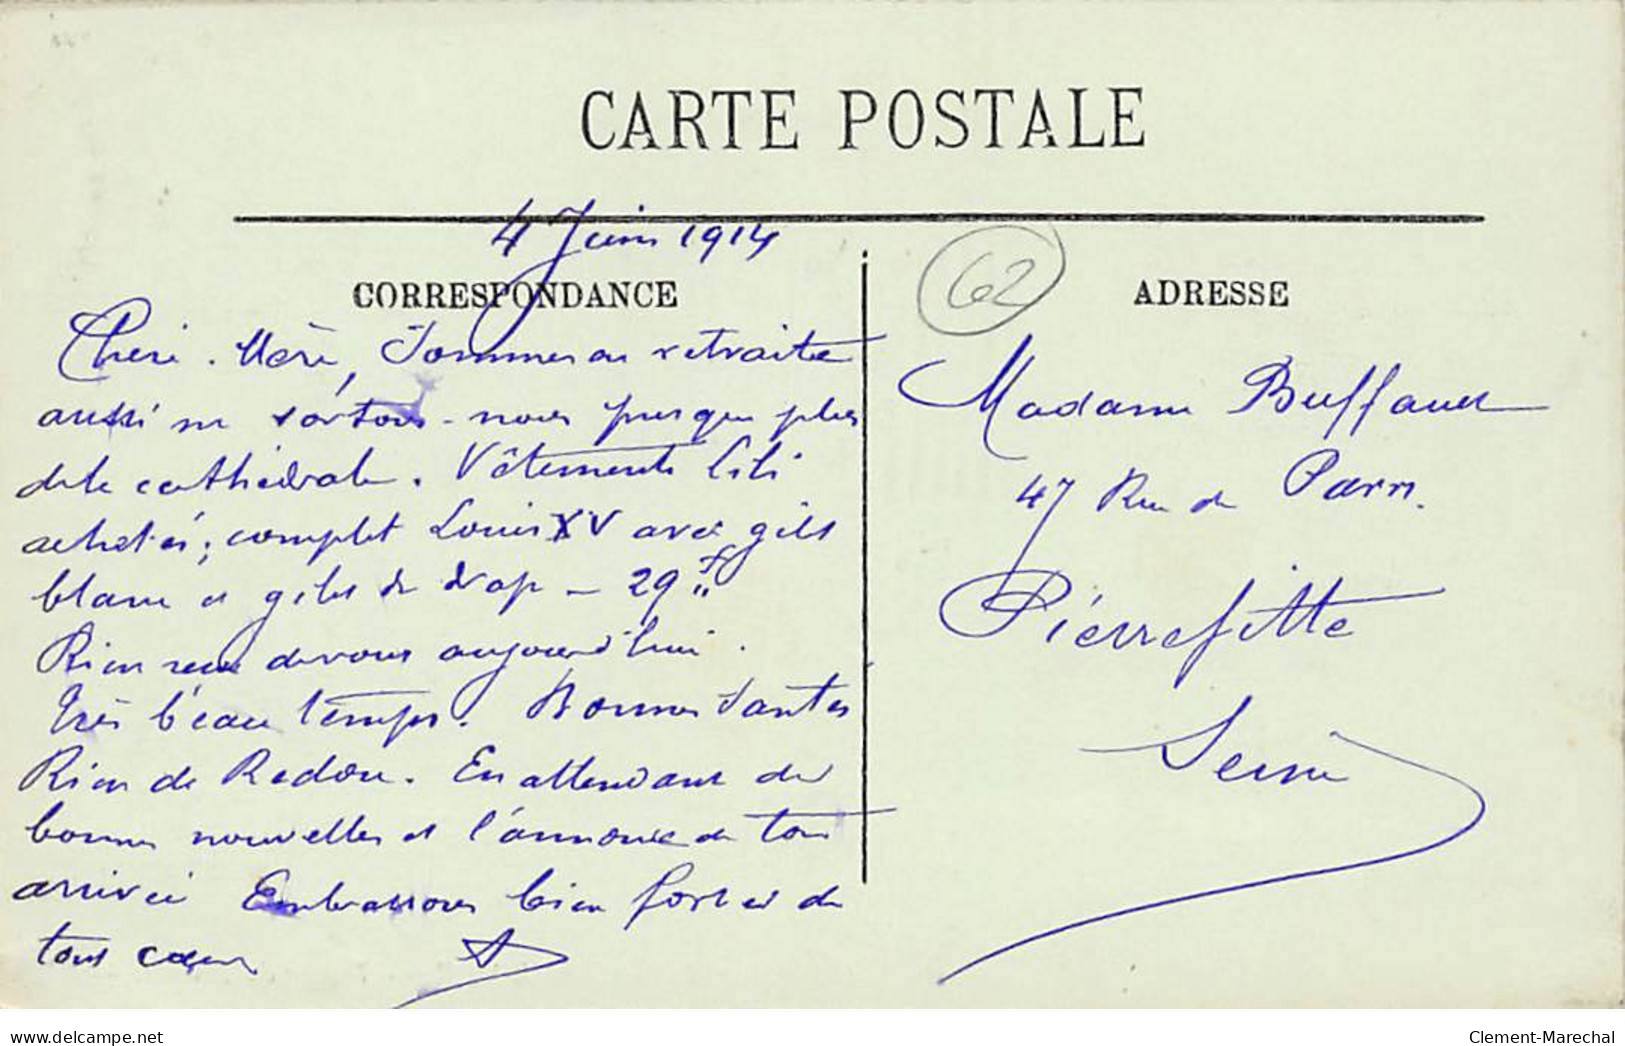 CARTE POSTALE
4 Juin 1914
CORRESPONDANCE
Chère Mère, Sommes en retraite
aussi ne sortons-nous presque plus
de la cathédrale. Vêtements Lili
achetés; complet Louis XV avec gilet
blanc et gilet de drap — 29f"
Rien reçu de vous aujourd'hui.
Très beau temps. Bonnes santés
Rien de Redon. En attendant de
bonnes nouvelles et l'annonce de ton
arrivée Embrassons bien fort et de
tout cœur
62
ADRESSE
Madame Buffauet
47 Rue de Paris.
Pierrefitte
Seine
delcampe.net
Clement-Marechal